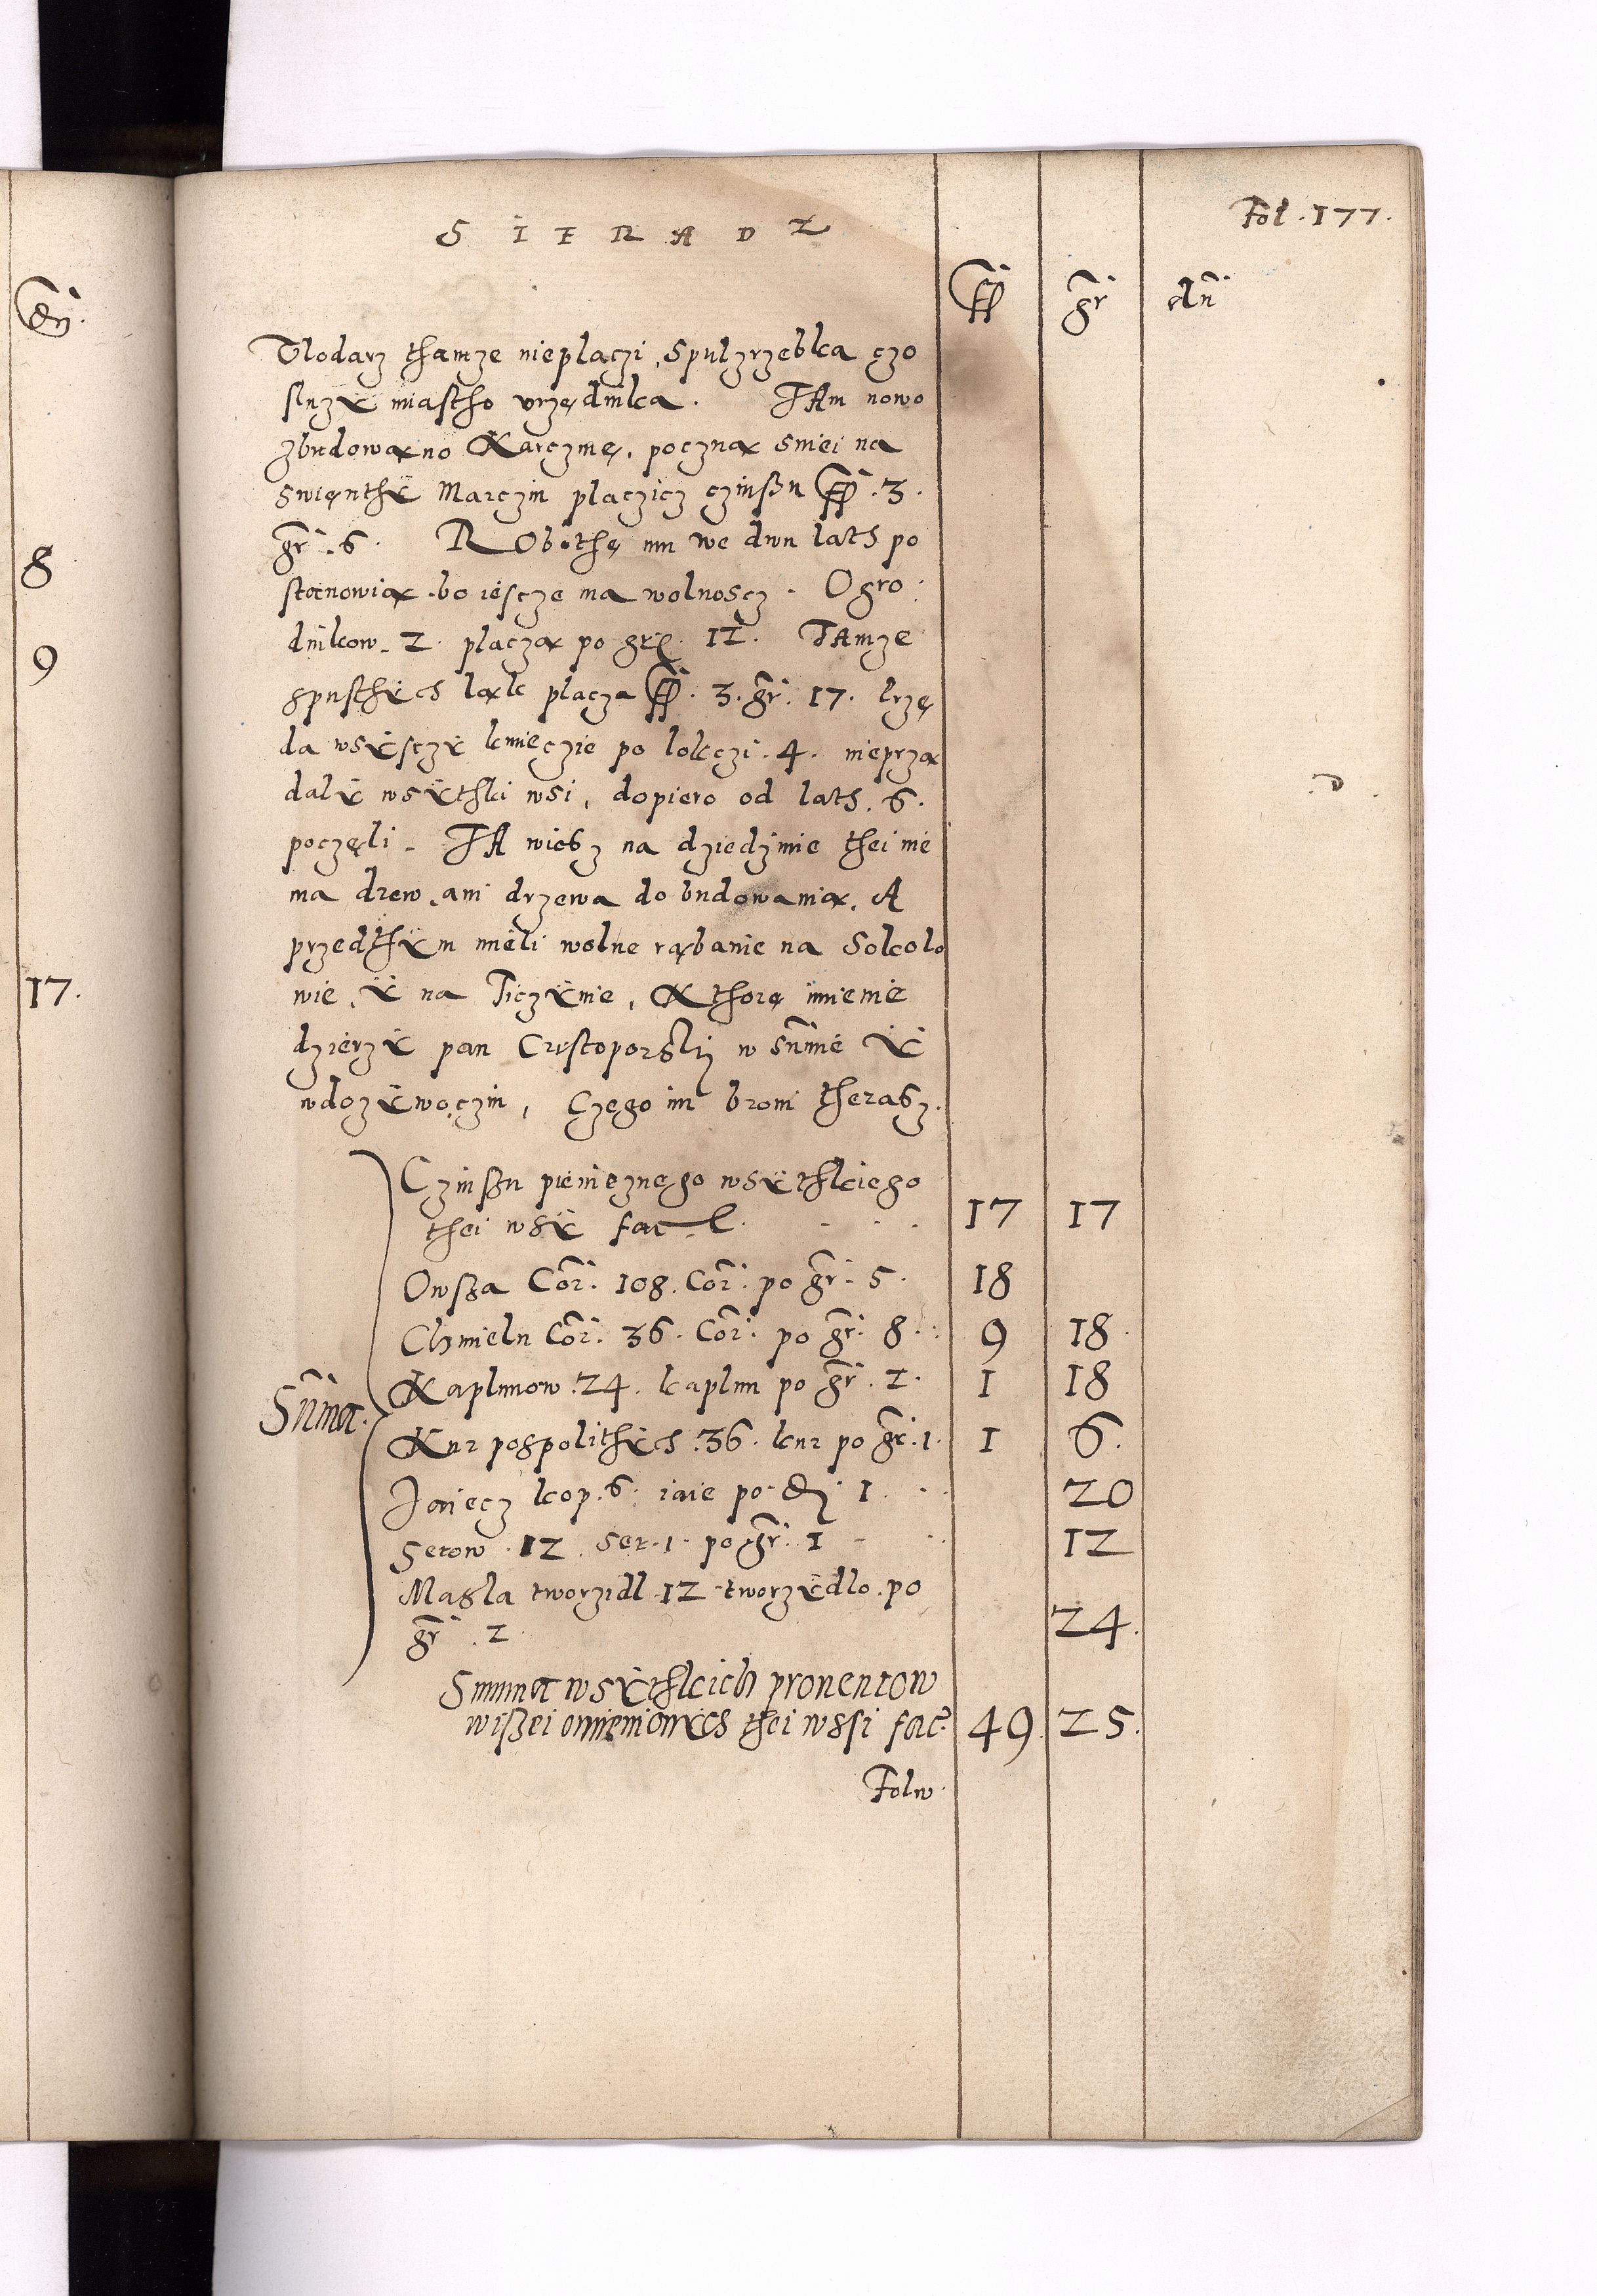 Fol. 177.
S I E R A D Z
fl gr dn
Wlodarz thamze nieplaczi, spulzrzebka czo
sluzy miastho vrzędnika. TAm nowo
zbudowano Karczmę, pocznax sniei na
swięnthy Marczin placzicz czinszu fl. 3.
gr. 6. RObothę mu we dwu lath po
stanowiax. bo iescze ma wolnoscz. Ogro
dnikow. 2. placzax po gr. 12. TAmze
spusthych ląk placza fl. 3. gr. 17. Krzę
da wsysczy kmieczie po lokczi. 4. nieprzą
daly wsythki wsi, dopiero od lath. 6.
poczęli. TA wiesz na dziedzinie thei nie
ma drew, ani drzewa do budowania. A
przedthym mieli wolne rąbanie na Sokolo
wie, y na Ticzynie, Kthorę imienie
dzierzy pan Crystoporski w summie y
wdozywoczin, Czego im broni therasz.
Czinszu pieniężnego wsythkiego
thei wsy fac. 17 17
Owsza Cor. 108. Cor. po gr. 5. 18
Chmielu Cor. 36. Cor. po gr. 8. 9 18
Summa.
Kaplunow. 24. kaplun po gr. 2. 1 18
Kur pospolithych. 36. kur po gr. 1. 1 6.
Jaiecz kop. 6. iaie po d. 1 20
Serow. 12. ser. 1. po gr. 1 12
Masla tworzidl. 12. tworzydlo. po
gr. 2. 24.
Summa wsythkich prouentow
wiszei omienionych thei wssi fac. 49 25.
Folw.
8
9
17.